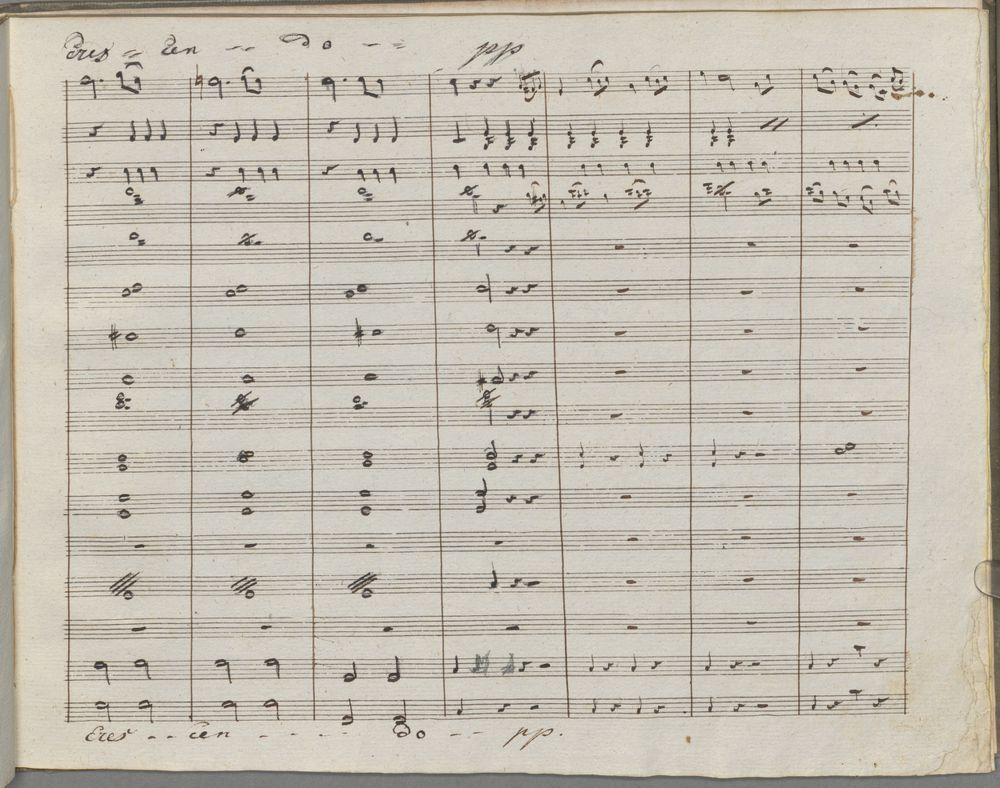 Cres - - cen - - do - - - pp
Cres - - cen - - - - - do - - - pp.